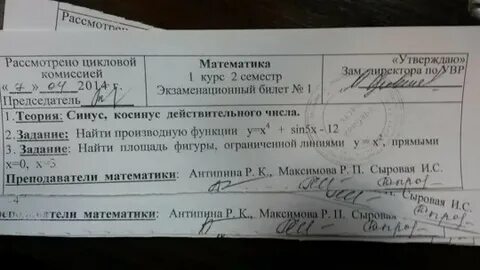 Рассмотрено
Рассмотрено цикловой комиссией
« 7 » 04 2014 г.
Председатель
Математика
1 курс 2 семестр
Экзаменационный билет № 1
«Утверждаю»
Зам. директора по УВР
1. Теория: Синус, косинус действительного числа.
2. Задание: Найти производную функции y=x⁴ + sin5x - 12
3. Задание: Найти площадь фигуры, ограниченной линиями y = x², прямыми
x=0, x=3
Преподаватели математики: Антипина Р. К., Максимова Р. П. Сыровая И.С.
Сыровая И.С.
ватели математики: Антипина Р. К., Максимова Р. П. Сырова